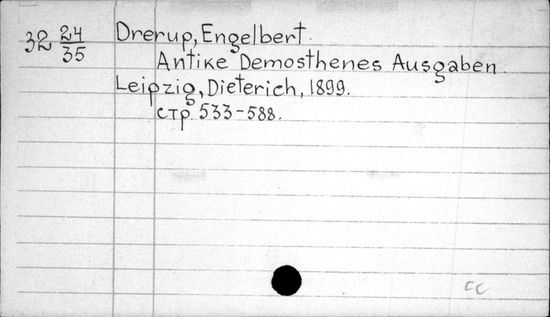 32 24/35 Drerup, Engelbert.
Antike Demosthenes Ausgaben.
Leipzig, Dieterich, 1899.
стр. 533-588.
CC